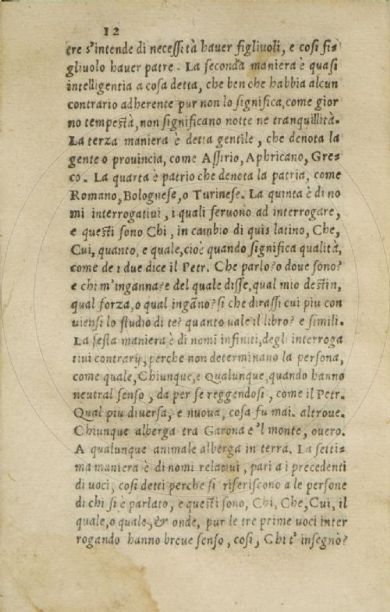 12
re s'intende di necessità hauer figliuoli, e così fi-
gliuolo hauer patre. La seconda maniera è quasi
intelligentia a cosa detta, che ben che habbia alcun
contrario adherente pur non lo significa, come gior
no tempestà, non significano notte ne tranquillità.
La terza maniera è detta gentile, che denota la
gente o prouincia, come Assirio, Aphricano, Gre-
co. La quarta è patrio che denota la patria, come
Romano, Bolognese, o Turinese. La quinta è di no
mi interrogatiui, i quali seruono ad interrogare,
e questi sono Chi, in cambio di quis latino, Che,
Cui, quanto, e quale, cioè quando significa qualità,
come de i due dice il Petr. Che parlo? o doue sono?
e chi m'inganna? e del quale disse, qual mio destin,
qual forza, o qual ingãno? sì che dirassi cui piu con
uiensi lo studio di te? quanto uale il libro? e simili.
La sesta maniera è di nomi infiniti, degli interroga
tiui contrarij, perche non determinano la persona,
come quale, Chiunque, e Qualunque, quando hanno
neutral senso, da per se reggendosi, come il Petr.
Qual piu diuersa, e nuoua, cosa fu mai. altroue.
Chiunque alberga tra Garona e'l monte, ouero.
A qualunque animale alberga in terra. La setti-
ma maniera è di nomi relatiui, pari a i precedenti
di uoci, così detti perche si riferiscono a le persone
di chi si è parlato, e questi sono, Chi, Che, Cui, il
quale, o quale, & onde, pur le tre prime uoci inter
rogando hanno breue senso, così, Chi t'insegnò?